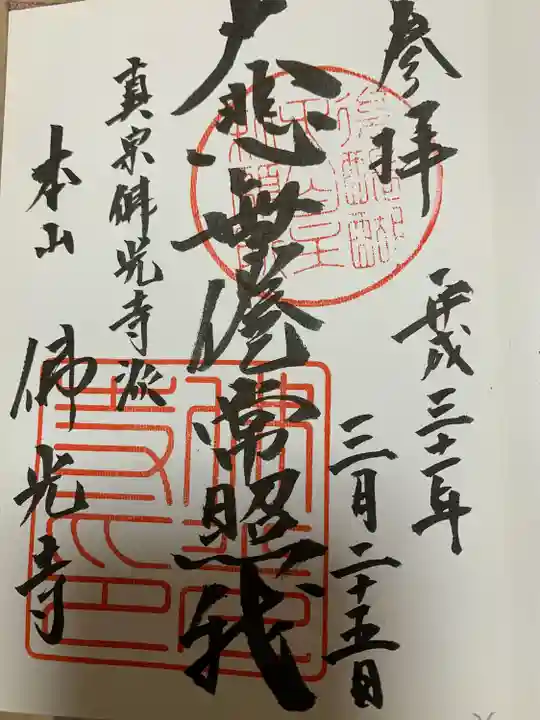 参拝
平成三十一年
三月二十五日
大悲無倦常照我
真宗佛光寺派
本山 佛光寺